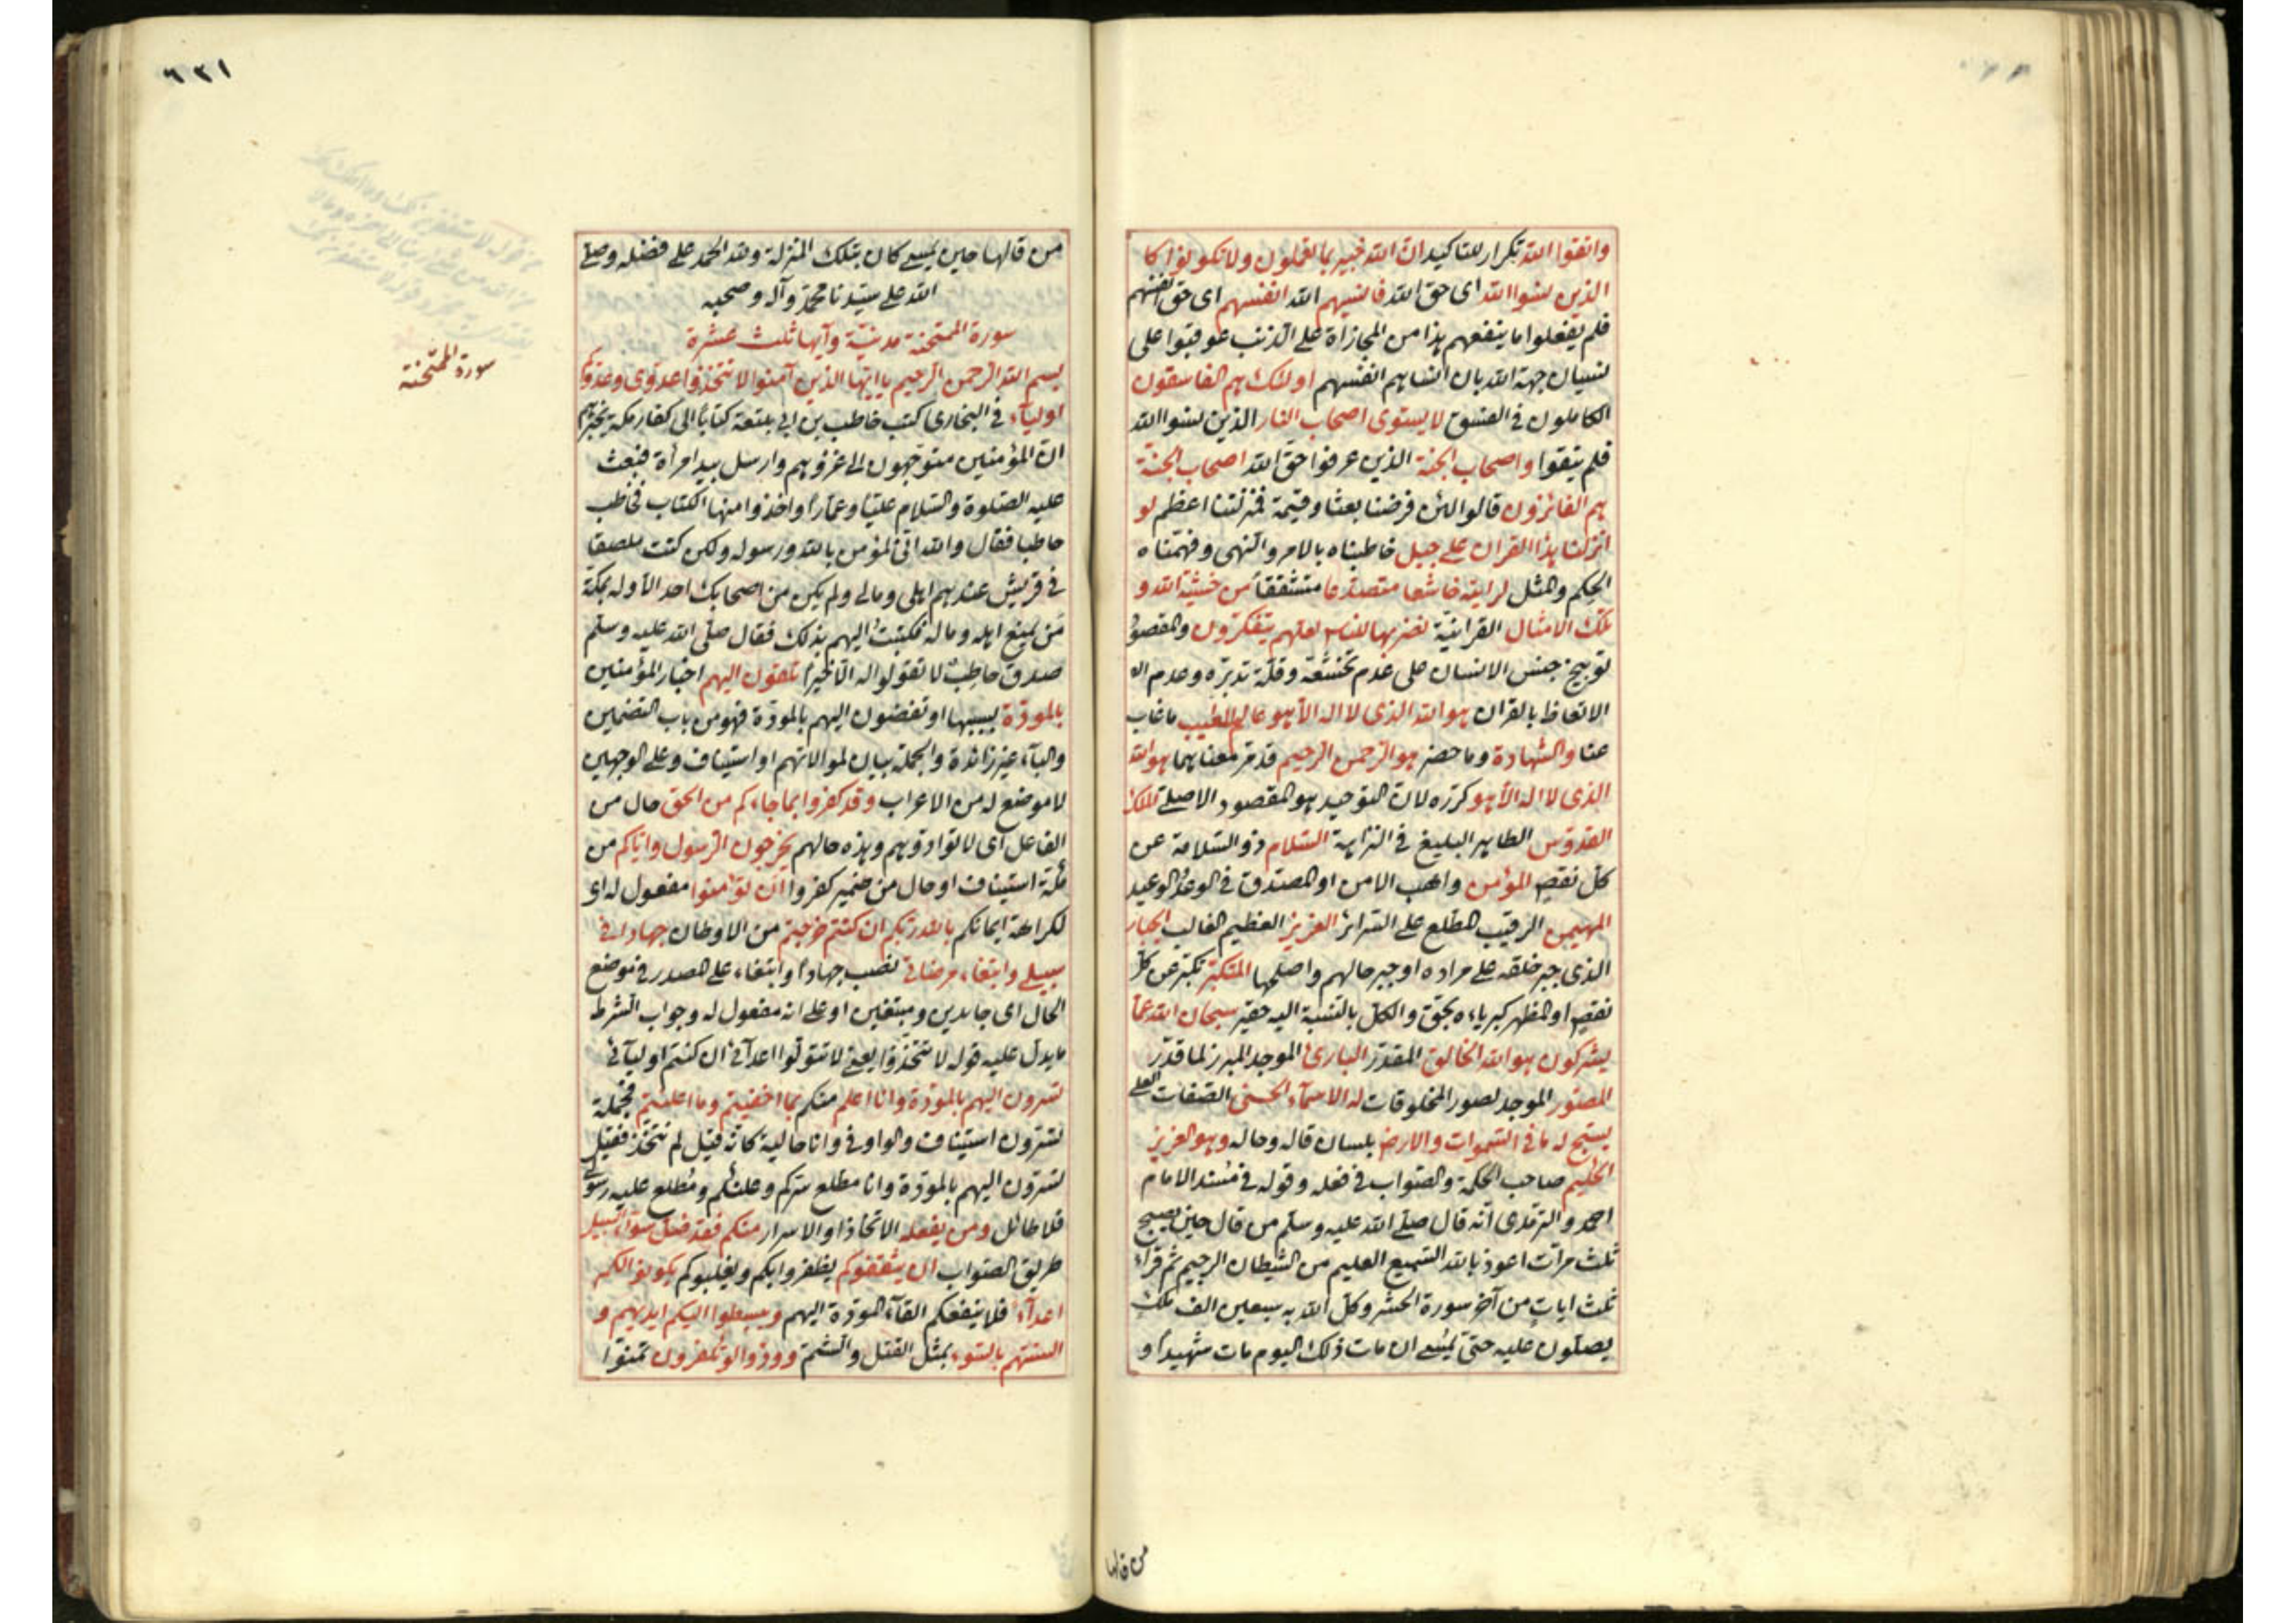 واتقوا الله تكرار للتاكيد ان الله خبير بما تعملون ولا تكونوا كا
الذين نسوا الله اى حق الله فانسيهم الله انفسهم اى حق انفسهم
فلم يفعلوا ما ينفعهم هذا من المجازاة على الذنب عوقبوا على
نسيان جهة الله بان انساهم انفسهم اولئك هم الفاسقون
الكاملون فى الفسق لا يستوى اصحاب النار الذين نسوا الله
فلم يتقوا واصحاب الجنة الذين عرفوا حق الله اصحاب الجنة
هم الفائزون قالوا لئن فرضنا بعثا وقيمة فمنزلتنا اعظم لو
انزلنا هذا القران على جبل خاطبناه بالامر والنهى وفهمناه
الحكم والمثل لرايته خاشعا متصدعا متشققا من خشية الله و
تلك الامثال القرانية نضربها للناس لعلهم يتفكرون والمقصود
توبيخ جنس الانسان على عدم تخشعه وقلة تدبره وعدم
الاتعاظ بالقران هو الله الذى لا اله الا هو عالم الغيب ما غاب
عنا والشهادة وما حضر هو الرحمن الرحيم قد مر معناهما هو الله
الذى لا اله الا هو كرره لان التوحيد هو المقصود الاصلى الملك
القدوس الطاهر البليغ فى النزاهة السلام ذو السلامة عن
كل نقص المؤمن واهب الامن او المصدق فى الوعد والوعيد
المهيمن الرقيب المطلع على السرائر العزيز العظيم الغالب الجبار
الذى جبر خلقه على مراده او جبر حالهم واصلحها المتكبر تكبر عن كل
نقص او المظهر كبرياءه بحق والكل بالنسبة اليه حقير سبحان الله عما
يشركون هو الله الخالق المقدر البارئ الموجد المبرز لما قدر
المصور الموجد لصور المخلوقات له الاسماء الحسنى الصفات العلى
يسبح له ما فى السموات والارض بلسان قاله وحاله وهو العزيز
الحكيم صاحب الحكمة والصواب فى فعله وقوله فى مسند الامام
احمد والترمذى انه قال صلى الله عليه وسلم من قال حين يصبح
ثلث مرات اعوذ بالله السميع العليم من الشيطان الرجيم ثم قراء
ثلث ايات من آخر سورة الحشر وكل الله به سبعين الف ملك
يصلون عليه حتى يمسى ان مات ذلك اليوم مات شهيدا و
من قالها
٦٢١
من قالها حين يمسى كان بتلك المنزلة ولله الحمد على فضله وصلى
الله على سيدنا محمد وآله وصحبه
سورة الممتحنة مدنية وآيها ثلث عشرة
سورة الممتحنة
بسم الله الرحمن الرحيم يا ايها الذين آمنوا لا تتخذوا عدوى وعدوكم
اولياء فى البخارى كتب حاطب بن ابى بلتعة كتابا الى كفار مكة يخبرهم
ان المؤمنين متوجهون الى غزوهم وارسل بيد امرأة فبعث
عليه الصلوة والسلام عليا وعمارا واخذوا منها الكتاب فخاطب
حاطبا فقال والله انى لمؤمن بالله ورسوله ولكن كنت ملصقا
فى قريش عندهم اهلى ومالى ولم يكن من اصحابك احد الا وله بمكة
من يمنع اهله وماله فكتبت اليهم بذلك فقال صلى الله عليه وسلم
صدق حاطب لا تقولوا له الا خيرا تلقون اليهم اخبار المؤمنين
بالمودة بسببها او تفضون اليهم بالمودة فهو من باب التضمين
والباء غير زائدة والجملة بيان لموالاتهم او استيناف وعلى الوجهين
لا موضع له من الاعراب وقد كفروا بما جاءكم من الحق حال من
الفاعل اى لا توادوهم وهذه حالهم يخرجون الرسول واياكم من
مكة استيناف او حال من ضمير كفروا ان تؤمنوا مفعول له اى
لكراهة ايمانكم بالله ربكم ان كنتم خرجتم من الاوطان جهادا فى
سبيلى وابتغاء مرضاتى نصب جهادا وابتغاء على المصدر فى موضع
الحال اى جاهدين ومبتغين او على انه مفعول له وجواب الشرط
ما يدل عليه قوله لا تتخذوا يعنى لا تتولوا اعدآئى ان كنتم اوليآئى
تسرون اليهم بالمودة وانا اعلم منكم بما اخفيتم وما اعلنتم فجملة
تسرون استيناف والواو فى وانا حالية كانه قيل لم نتخذ فقيل
تسرون اليهم بالمودة وانا مطلع سركم وعلنكم ومطلع عليه رسولى
فلا طائل ومن يفعله الاتخاذ او الاسرار منكم فقد ضل سواء السبيل
طريق الصواب ان يثقفوكم يظفروا بكم ويغلبوكم يكونوا لكم
اعداء فلا ينفعكم القاء المودة اليهم ويبسطوا اليكم ايديهم و
السنتهم بالسوء بمثل القتل والشتم وودوا لو تكفرون تمنوا